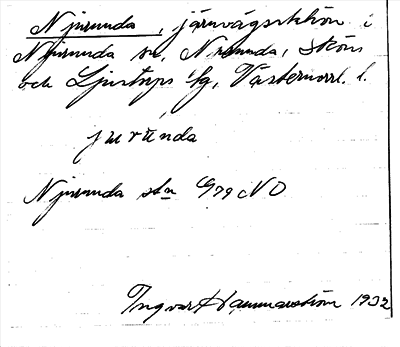 Njurunda, järnvägsstation i
Njurunda sn, Njurunda, Sköns
och Ljustorps tg, Västernorrl. l.
jurúnda
Njurunda stn G99 NO
Ingvar Hammarström 1932